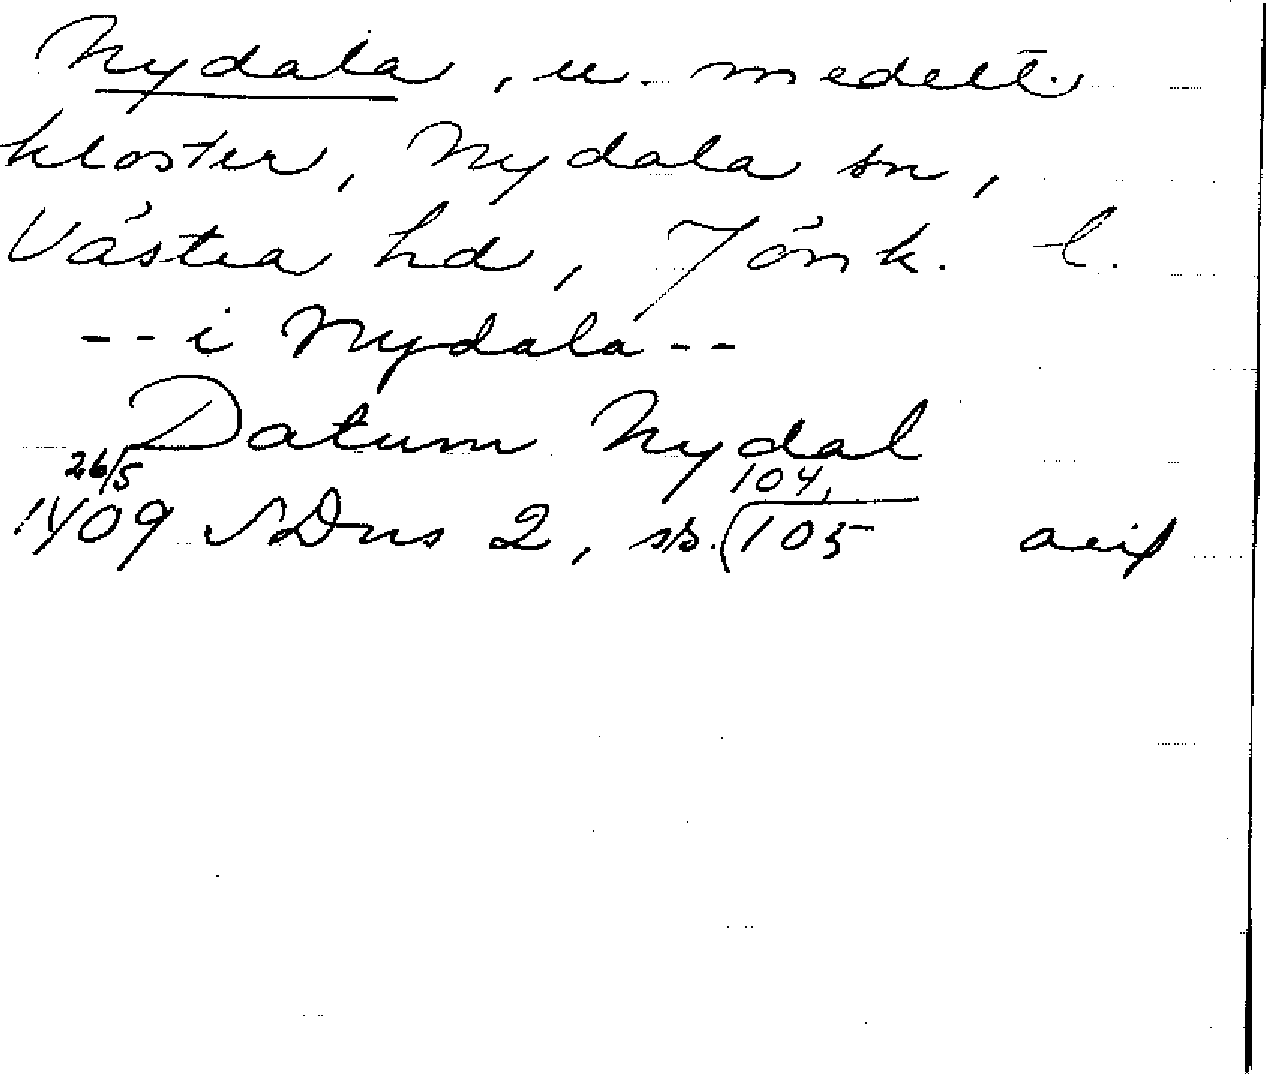 Nydala, u. medelt.
kloster, Nydala sn,
Västra hd, Jönk. l.
-- i Nydala --
Datum Nydal
26/5 104,
1409 SDns 2, sp. (105 avs